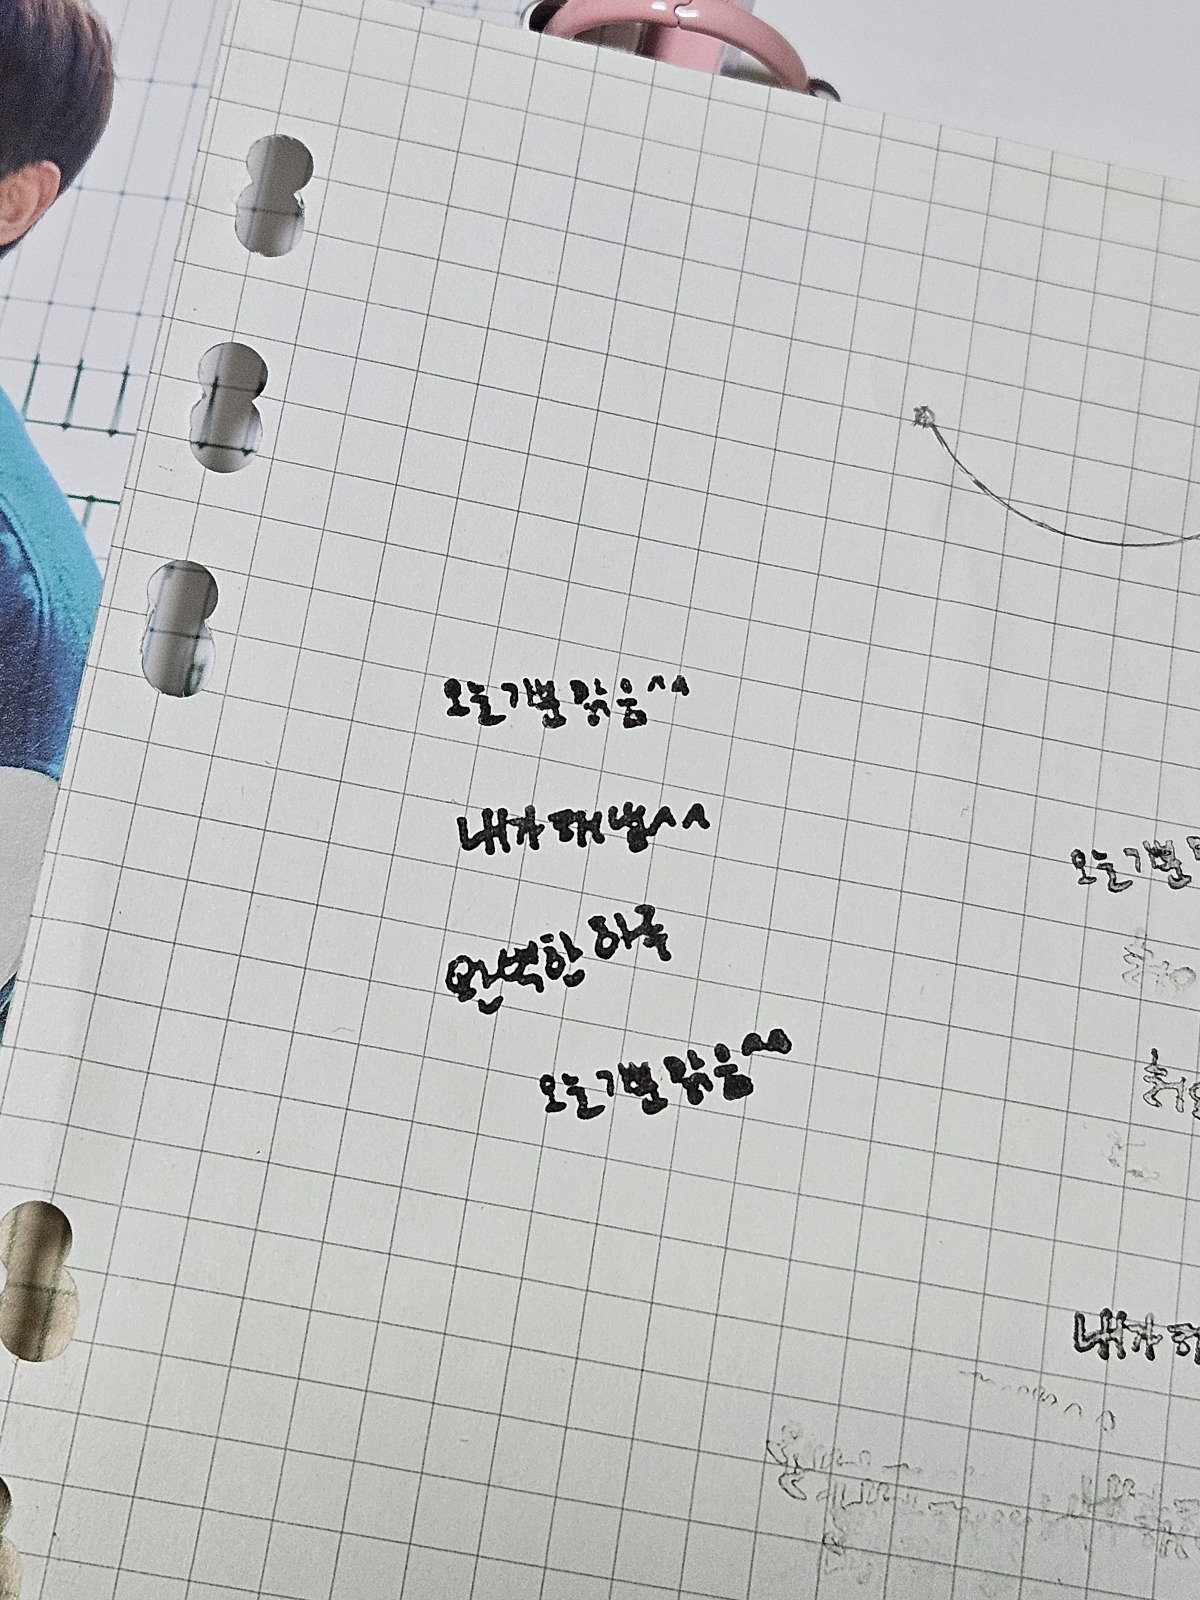 오늘 기분 맑음^^
내가 해냄^^
완벽한 하루
오늘 기분 맑음^^
오늘 기분
내가 해